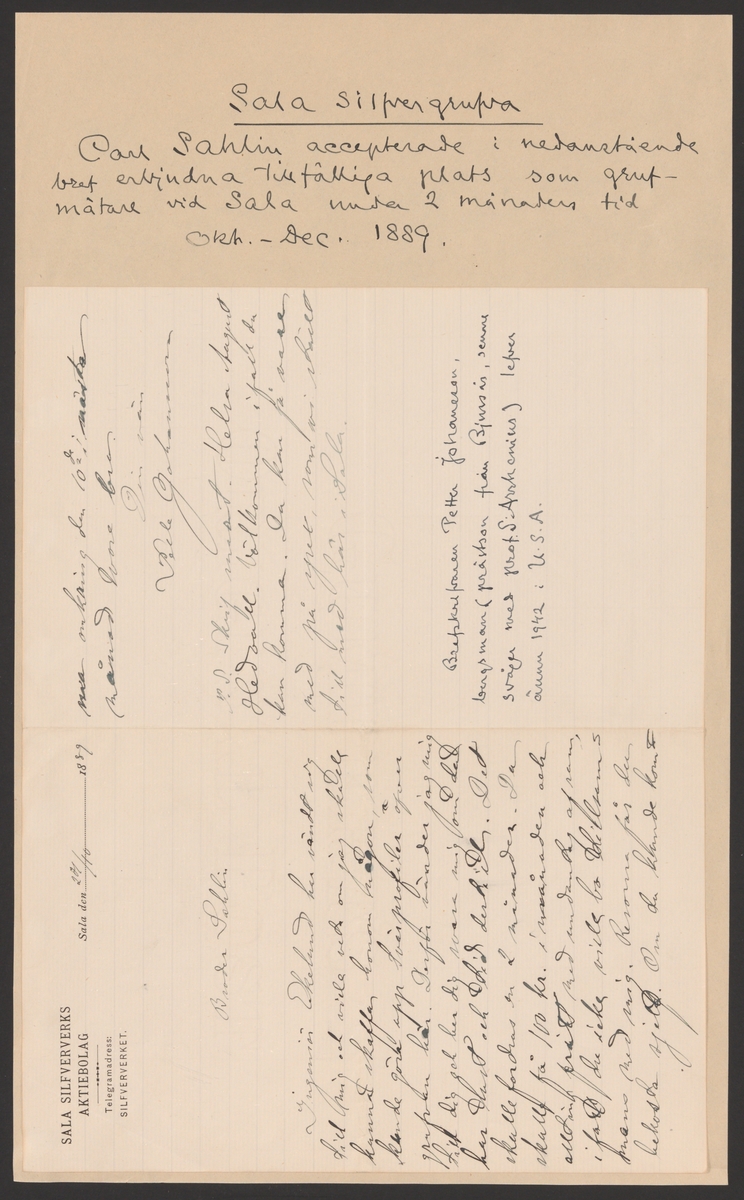 Sala Silfvergrufva
Carl Sahlin accepterade i nedanstående
bref erbjudna tillfälliga plats som gruf-
mätare vid Sala under 2 månaders tid
Okt. - Dec. 1889.
SALA SILFVERVERKS
AKTIEBOLAG
Telegramadress:
SILFVERVERKET.
Sala den 24/10 1889
Broder Sahlin
Ingeniör Ekelund har vändt sig
till mig och ville veta om jag skulle
kunna skaffa honom någon, som
kunde göra upp tvärprofiler öfver
grufvan här. Derför vänder jag mig
till dig och ber dig svara mig om du
har lust och tid dertill. Det
skulle fordras en 2 månader. Du
skulle få 100 kr. i månaden och
allting fritt med undantag af rum,
ifall du icke ville bo tillsam-
mans med mig. Resorna får du
bekosta sjelf. Om du blande komme
omkring den 10de i nästa
månad vore bra
Din vän
Pelle Johansson
P.S. Skrif snart. Helsa August
Hedvall. Välkommen ifall du
kan komma. Du kan få vara
med på spel, som vi
till med här i Sala.
Brefskrifvaren Petter Johansson,
bergsman (prästson från Bjursås, senare
svåger med prof. S. Arrhenius) lefver
ännu 1942 i U.S.A.